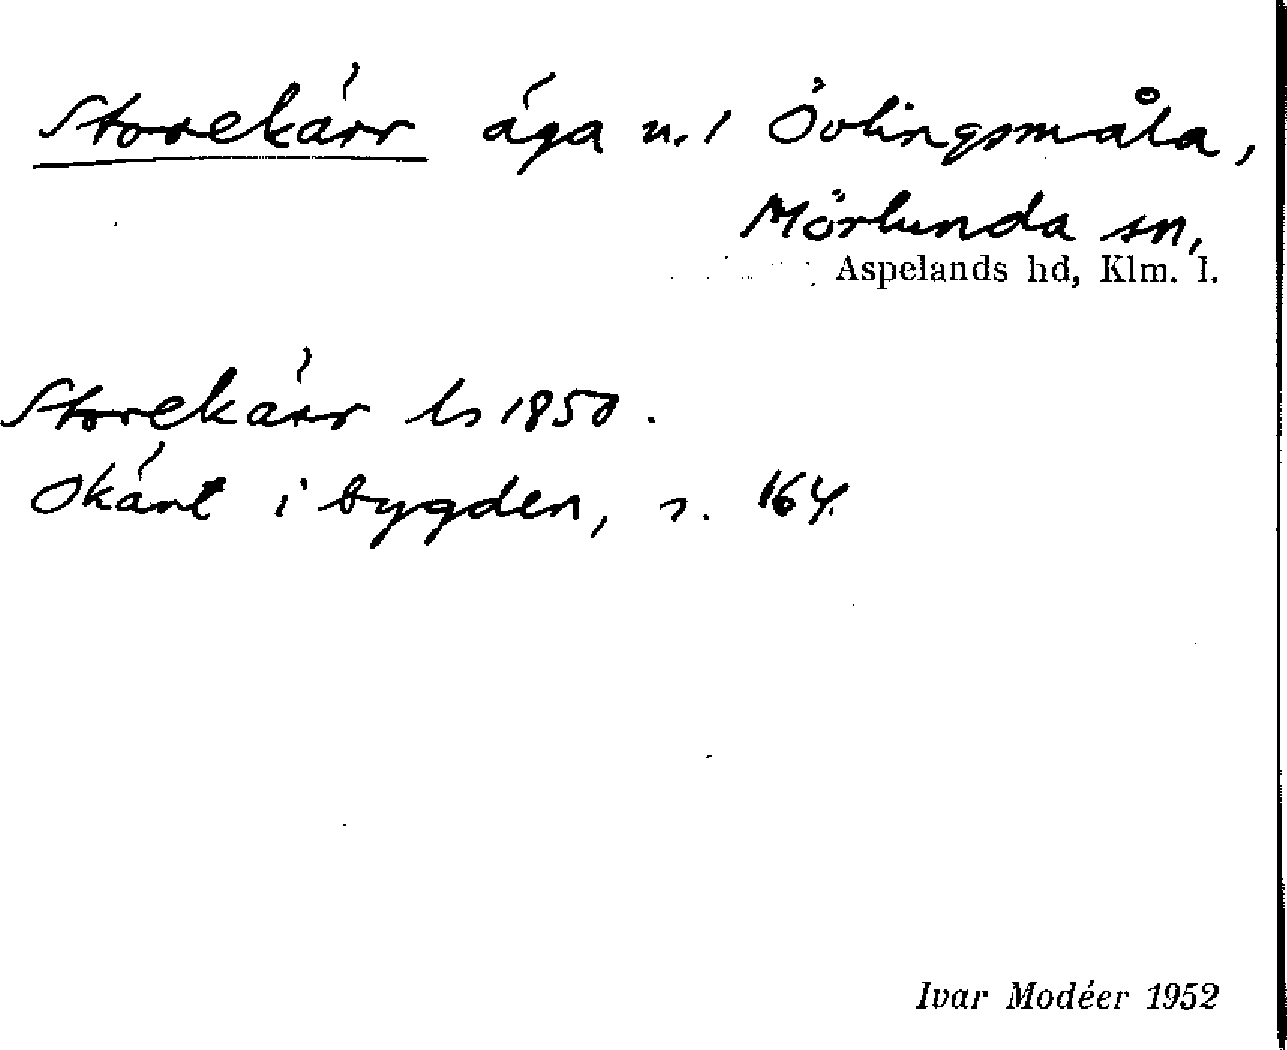 Storekärr äga u. / Övlingsmåla,
Mörlunda sn,
Aspelands hd, Klm. l.
Storekärr ls 1850.
Okänt i bygden, s. 164.
Ivar Modéer 1952